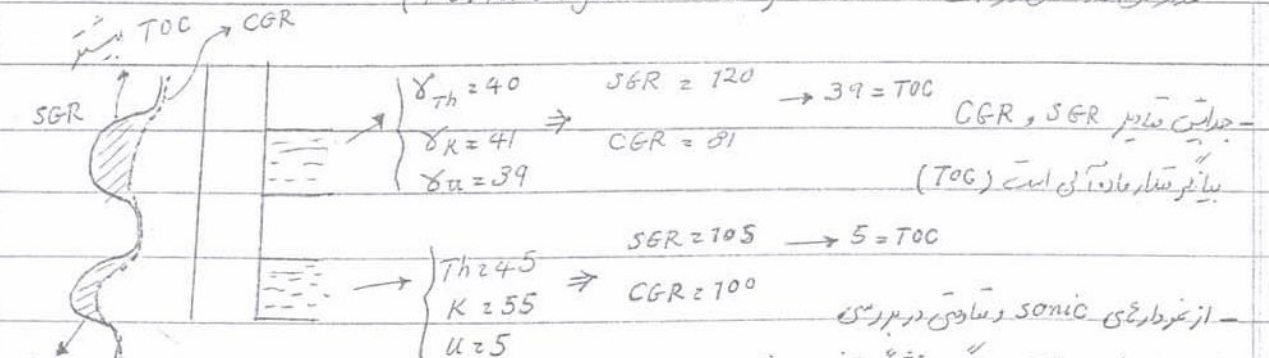 بیشتر TOC → CGR
SGR
γTh = 40
γK = 41
γu = 39
⇒ SGR = 120
CGR = 81
→ 39 = TOC
- جدایش مقادیر SGR و CGR
بیانگر مقدار ماده آلی است (TOC)
Th = 45
K = 55
u = 5
⇒ SGR = 105
CGR = 100
→ 5 = TOC
- از نمودارهای sonic و مقاومتی در بررسی